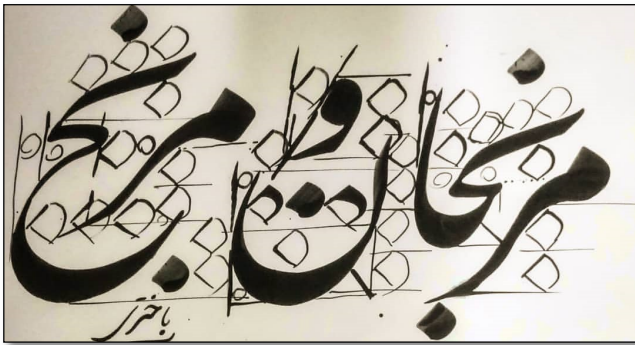 مرنجان و مرنج
باختر